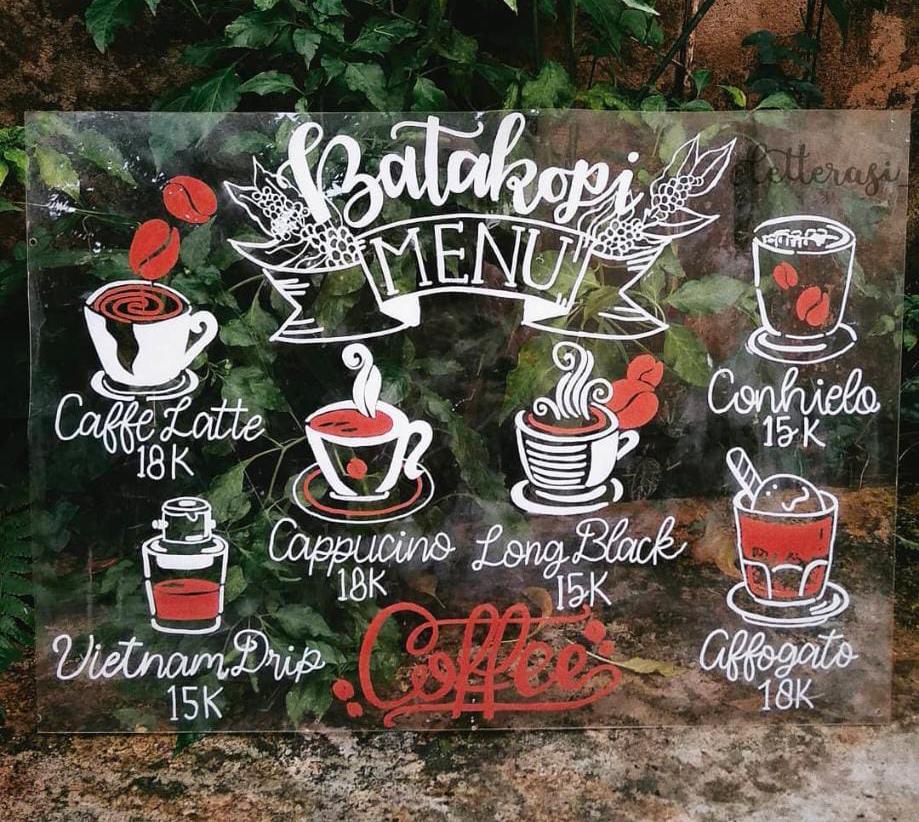 Batakopi
MENU
Caffe Latte
18K
Cappucino
18K
Long Black
15K
Conhielo
15K
Vietnam Drip
15K
Coffee
Affogato
18K
Letterasi